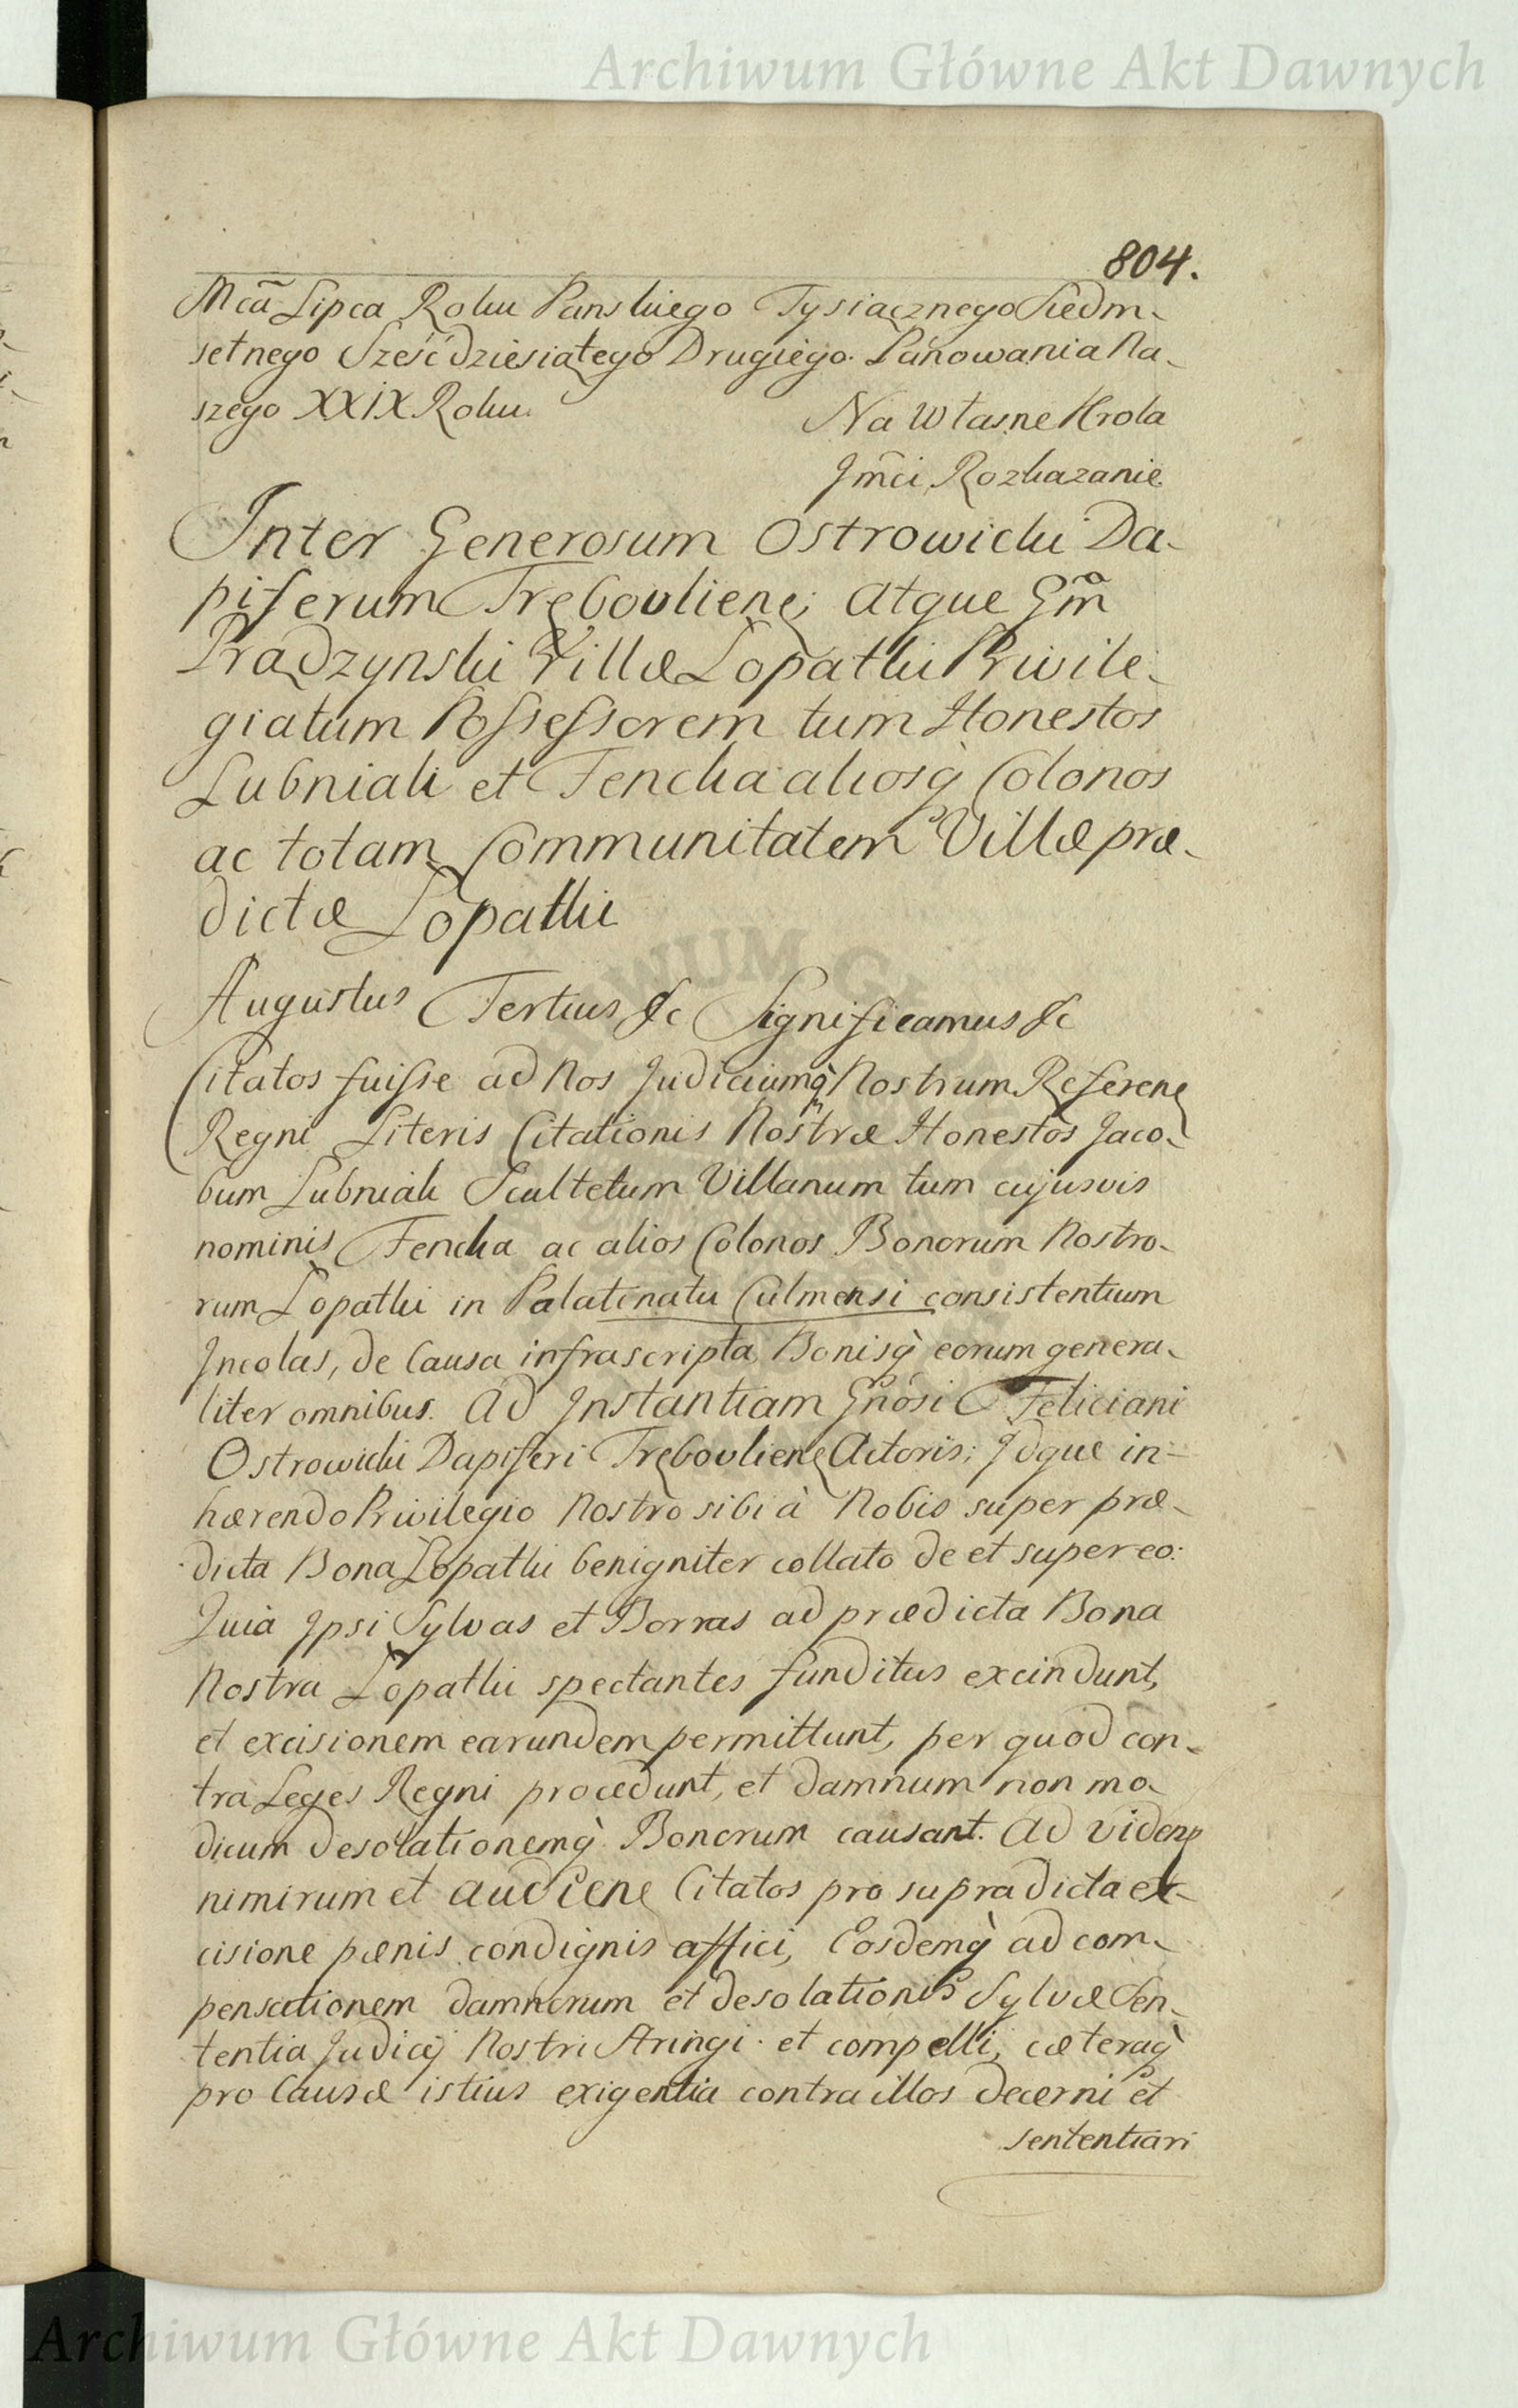 Archiwum Główne Akt Dawnych
804.
Mcã Lipca Roku Panskiego Tysiącznego Siedm-
setnego Sześćdziesiątego Drugiego. Panowania Na-
szego XXIX Roku.
Na Własne Krola
Jmc̃i Rozkazanie
Inter Generosum Ostrowicki Da-
piferum Trębovliens; atque Gm̃
Prądzynski Villæ Łopatki Privile-
giatum Possessorem tum Honestos
Lubniak et Fencka aliosq̀ Colonos
ac totam Communitatem Villæ præ-
dictæ Łopatki
Augustus Tertius &c Significamus &c
Citatos fuisse ad Nos Judiciumq̀ Nostrum Referen
Regni Literis Citationis Nostræ Honestos Jaco-
bum Lubniak Scultetum Villanum tum cujusvis
nominis Fencka ac alios Colonos Bonorum Nostro-
rum Łopatki in Palatinatu Culmensi consistentium
Incolas, de Causa infrascripta, Bonisq̀ eorum genera-
liter omnibus. Ad Instantiam Gnosi Feliciani
Ostrowicki Dapiferi Trębovlien Actoris; Idque in-
hærendo Privilegio Nostro sibi à Nobis super præ-
dicta Bona Łopatki benigniter collato de et super eo:
Quia Ipsi Sylvas et Borras ad prædicta Bona
Nostra Łopatki spectantes funditus excindunt,
et excisionem earundem permittunt, per quod con-
tra Leges Regni procedunt, et damnum non mo-
dicum desolationemq̀ Bonorum causant. Ad viden
nimirum et audien Citatos pro supradicta ex-
cisione pænis condignis affici, Eosdemq̀ ad com-
pensationem damnorum et desolationis Sylvæ Sen-
tentia Judicij Nostri stringi et compelli, cæteraq̀
pro Causæ istius exigentia contra illos decerni et
sententiari
Archiwum Główne Akt Dawnych